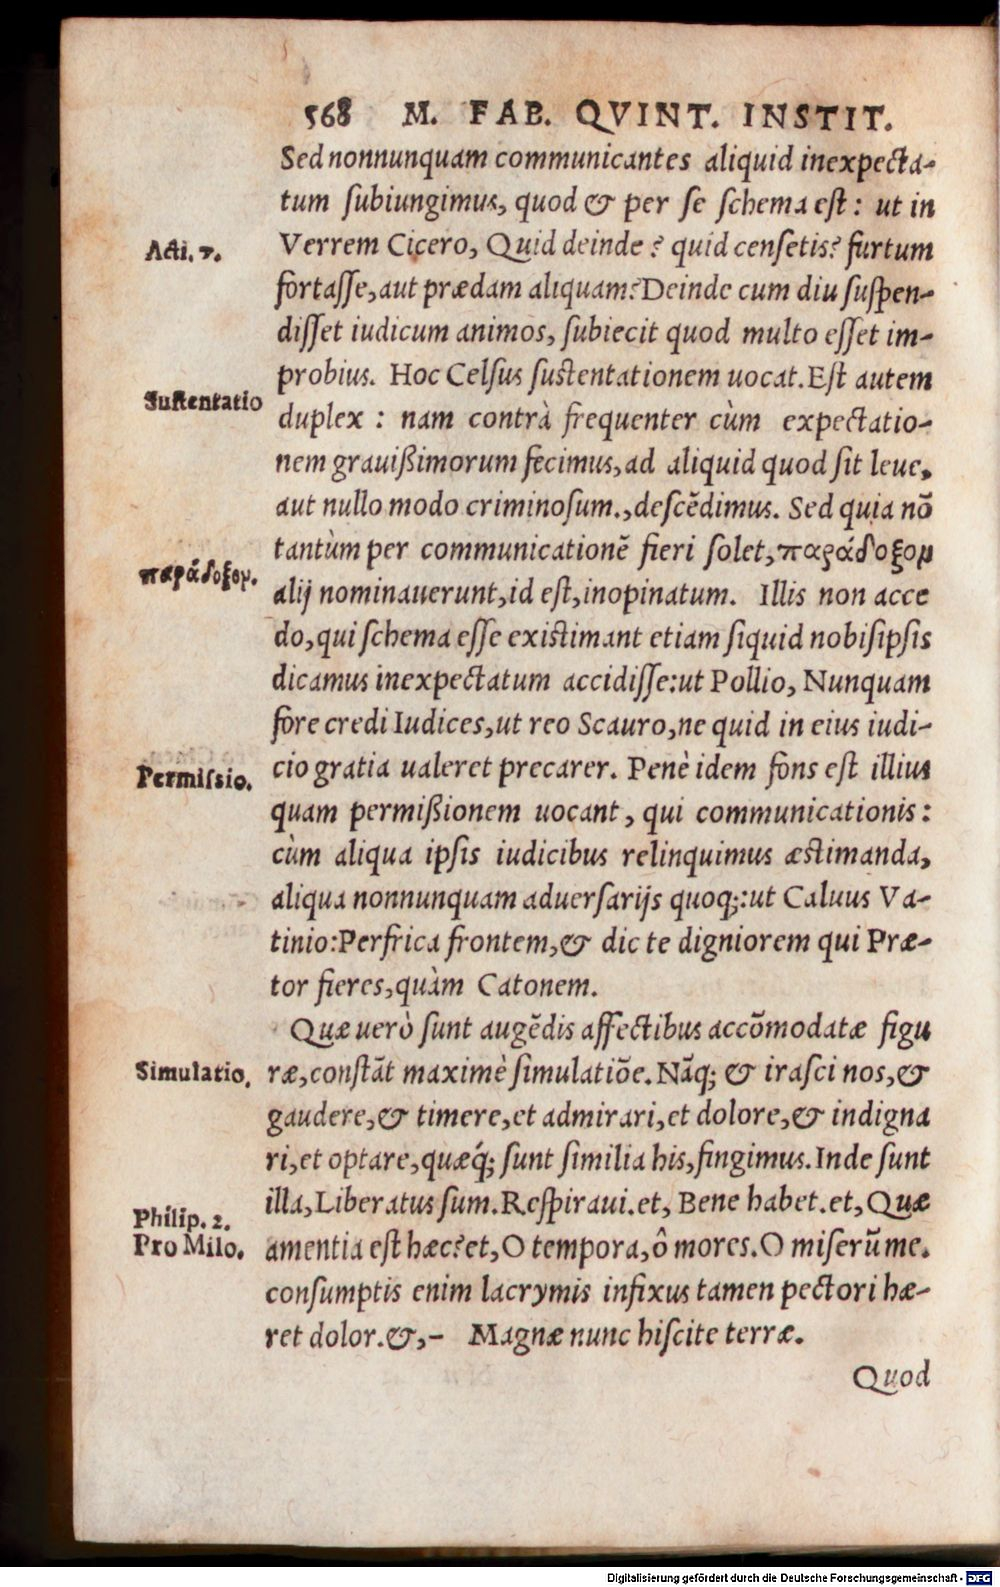 568 M. FAB. QVINT. INSTIT.
Sed nonnunquam communicantes aliquid inexpecta-
tum ſubiungimus, quod & per ſe ſchema eſt: ut in
Acti. 7.
Verrem Cicero, Quid deinde? quid cenſetis? furtum
fortaſſe, aut prædam aliquam? Deinde cum diu ſuſpen-
diſſet iudicum animos, ſubiecit quod multo eſſet im-
probius. Hoc Celſus ſuſtentationem uocat. Eſt autem
Suſtentatio
duplex: nam contrà frequenter cùm expectatio-
nem grauißimorum fecimus, ad aliquid quod ſit leue,
aut nullo modo criminoſum., deſcēdimus. Sed quia nō
tantùm per communicationē fieri ſolet, παράδοξομ
παράδοξομ.
alij nominauerunt, id eſt, inopinatum. Illis non acce
do, qui ſchema eſſe exiſtimant etiam ſiquid nobiſipſis
dicamus inexpectatum accidiſſe: ut Pollio, Nunquam
fore credi Iudices, ut reo Scauro, ne quid in eius iudi-
cio gratia ualeret precarer. Penè idem fons eſt illius
Permiſsio.
quam permißionem uocant, qui communicationis:
cùm aliqua ipſis iudicibus relinquimus æſtimanda,
aliqua nonnunquam aduerſarijs quoq;: ut Caluus Va-
tinio: Perfrica frontem, & dic te digniorem qui Præ-
tor fieres, quàm Catonem.
Quæ uerò ſunt augēdis affectibus accōmodatæ figu
Simulatio.
ræ, conſtāt maximè ſimulatiōe. Nāq; & iraſci nos, &
gaudere, & timere, et admirari, et dolore, & indigna
ri, et optare, quæq́; ſunt ſimilia his, fingimus. Inde ſunt
illa, Liberatus ſum. Reſpiraui. et, Bene habet. et, Quæ
Philip. 2.
Pro Milo.
amentia eſt hæc? et, O tempora, ô mores. O miſerū me.
conſumptis enim lacrymis infixus tamen pectori hæ-
ret dolor. &, - Magnæ nunc hiſcite terræ.
Quod
Digitalisierung gefördert durch die Deutsche Forschungsgemeinschaft - DFG